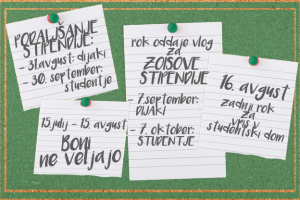 PODALJŠANJE
ŠTIPENDIJE:
- 31.avgust: dijaki
- 30. september:
študentje
15.julij - 15. avgust
Boni
ne veljajo
rok oddaje vlog
za
ZOISOVE
ŠTIPENDIJE
- 7.september:
DIJAKI
- 7. oktober:
ŠTUDENTJE
16. avgust
zadnji rok
za
vpis v
študentski dom